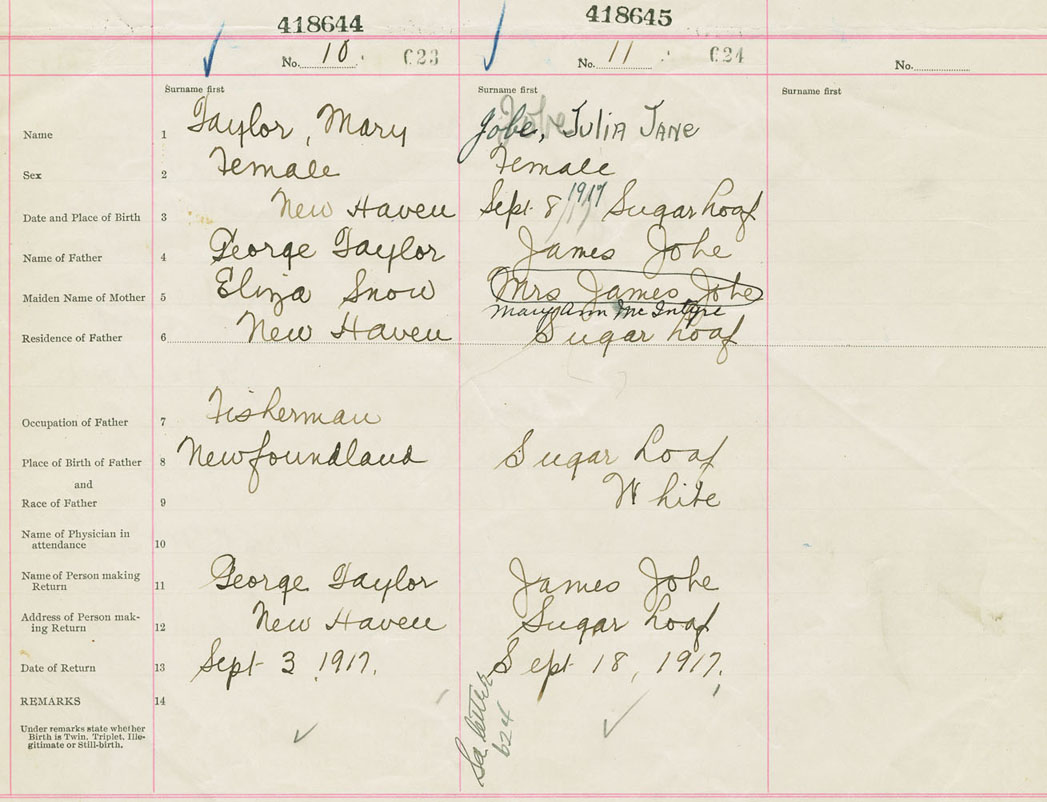 418644 418645
No. 10 623 No. 11 624 No.
Surname first Surname first Surname first
Name 1 Taylor, Mary Jobe, Julia Jane
Sex 2 Female Female
Date and Place of Birth 3 New Haven Sept 8 1917 Sugar Loaf
Name of Father 4 George Taylor James Jobe
Maiden Name of Mother 5 Eliza Snow Mrs James Jobe
Mary Ann Mc Intyre
Residence of Father 6 New Haven Sugar Loaf
Occupation of Father 7 Fisherman
Place of Birth of Father 8 Newfoundland Sugar Loaf
and
Race of Father 9 White
Name of Physician in
attendance 10
Name of Person making
Return 11 George Taylor James Jobe
Address of Person mak-
ing Return 12 New Haven Sugar Loaf
Date of Return 13 Sept 3, 1917. Sept 18, 1917.
REMARKS 14
Under remarks state whether
Birth is Twin, Triplet, Ille-
gitimate or Still-birth.
letter
624